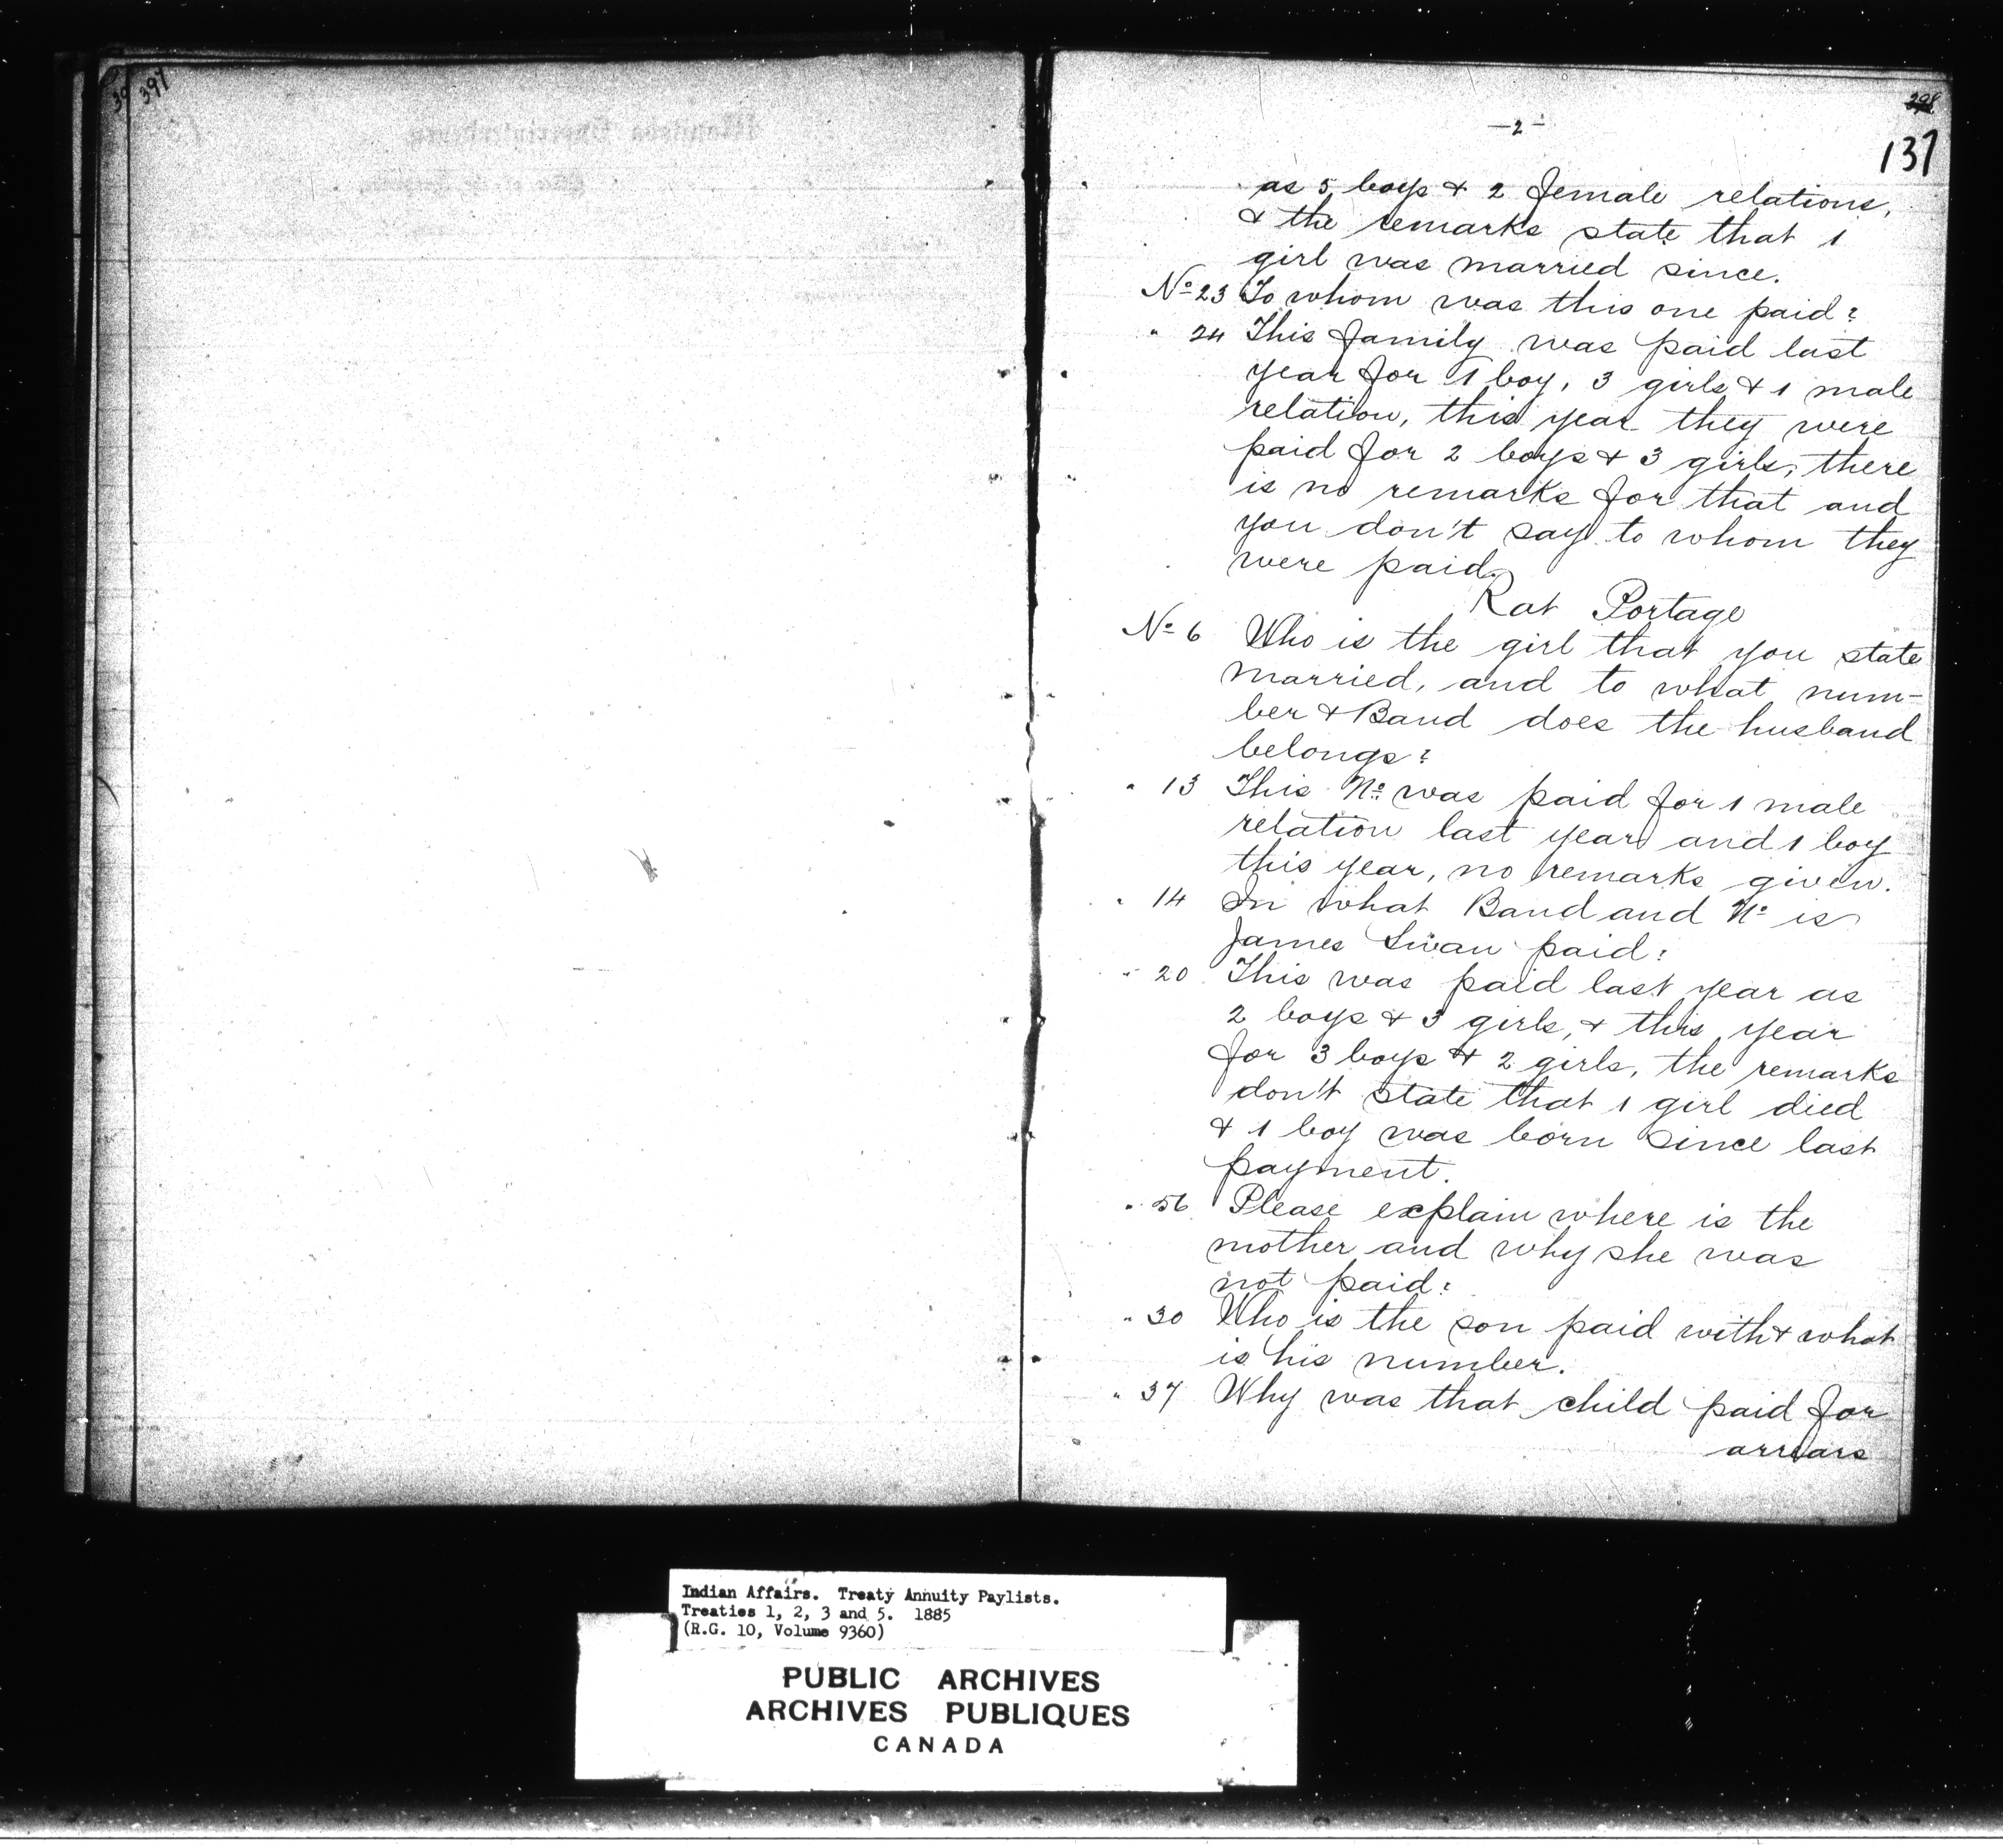 397
137
—2—
as 5 boys & 2 female relations,
& the remarks state that 1
girl was married since.
No 23 To whom was this one paid?
" 24 This family was paid last
year for 1 boy, 3 girls & 1 male
relation, this year they were
paid for 2 boys & 3 girls, there
is no remarks for that and
you don't say to whom they
were paid.
Rat Portage
No 6 Who is the girl that you state
married, and to what num-
ber & Band does the husband
belongs?
" 13 This No. was paid for 1 male
relation last year and 1 boy
this year, no remarks given.
" 14 In what Band and No is
James Swan paid?
" 20 This was paid last year as
2 boys & 3 girls, & this year
for 3 boys & 2 girls, the remarks
don't state that 1 girl died
& 1 boy was born since last
payment.
" 56 Please explain where is the
mother and why she was
not paid?
" 30 Who is the son paid with & what
is his number.
" 37 Why was that child paid for
arrears
Indian Affairs. Treaty Annuity Paylists.
Treaties 1, 2, 3 and 5. 1885
(R.G. 10, Volume 9360)
PUBLIC ARCHIVES
ARCHIVES PUBLIQUES
CANADA